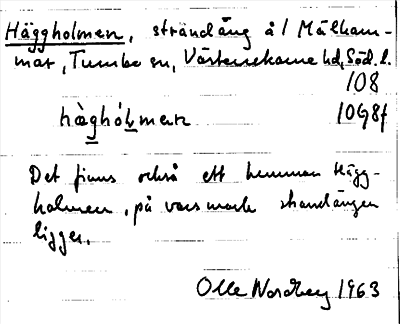 Häggholmen, strandäng å/ Mälkam-
mar, Tumbo sn, Västerrekarne hd, Söd. l.
108
hàghól̳men 10G8f
Det finns också ett hemman Hägg-
holmen, på vars mark strandängen
ligger.
Olle Nordberg 1963